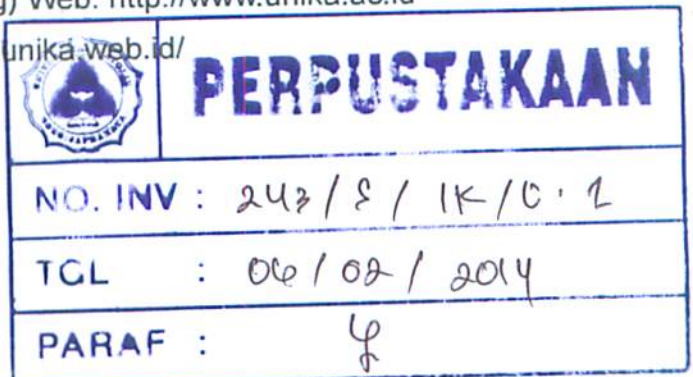 Web: http://www.unika.ac.id
unika.web.id/
PERPUSTAKAAN
NO. INV : 243 / S / IK / C . 1
TGL : 06 / 02 / 2014
PARAF :